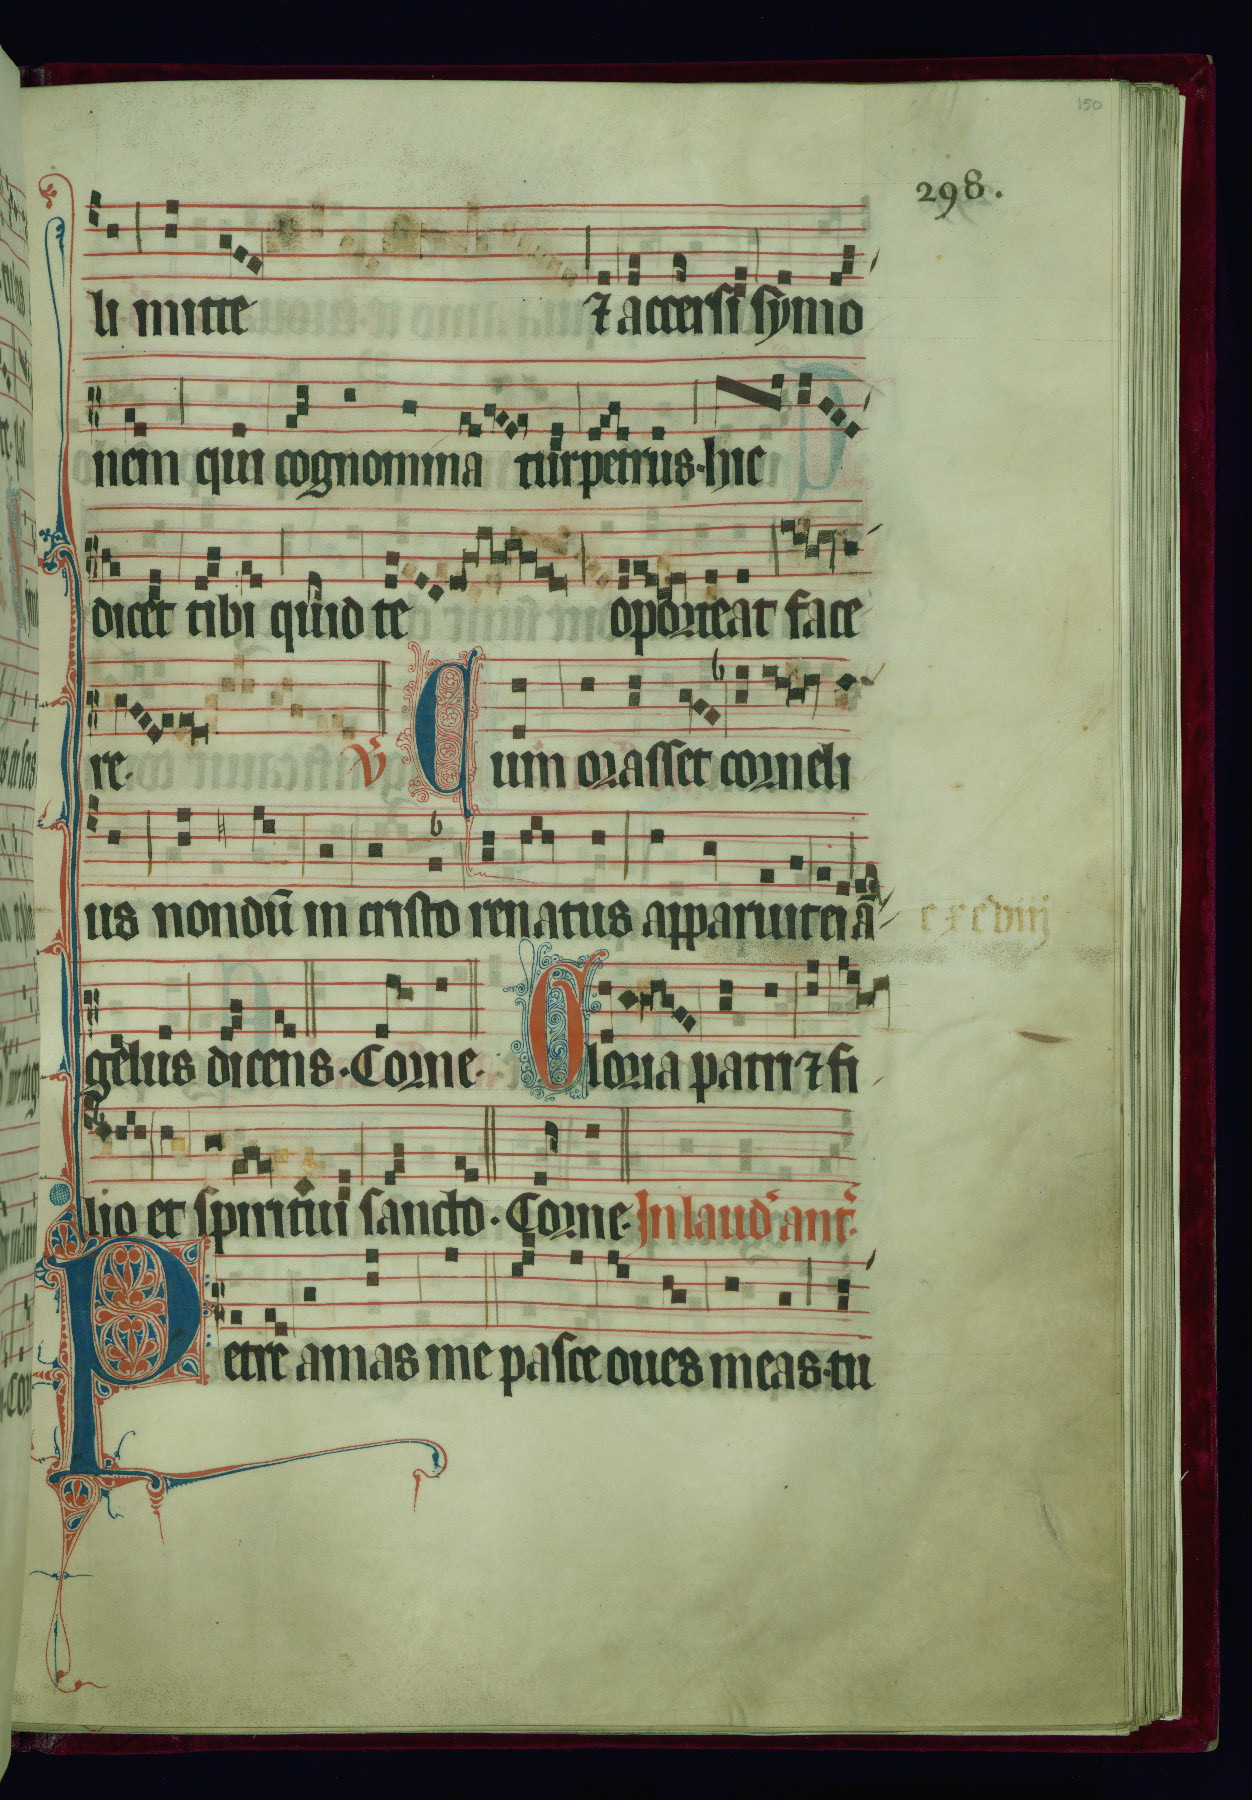 150
298.
li mitte ⁊ accersi symo
nem qui cognomina tur petrus · hic
dicet tibi quid te oporteat face
re · v̄ Cum orasset corneli
us nondū in cristo renatus apparuit ei ā
gelus dicens · Corne · Gloria patri ⁊ fi
lio et spiritui sancto · Corne · In laud' ant'
Petre amas me pasce oues meas · tu